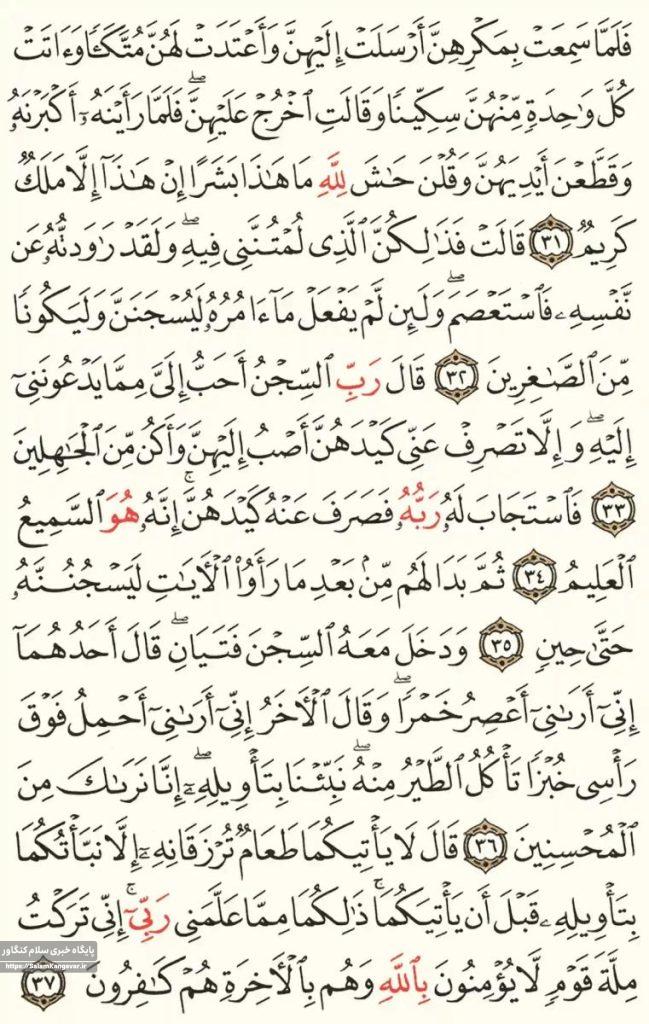 فَلَمَّا سَمِعَتْ بِمَكْرِهِنَّ أَرْسَلَتْ إِلَيْهِنَّ وَأَعْتَدَتْ لَهُنَّ مُتَّكَـًٔا وَءَاتَتْ
كُلَّ وَٰحِدَةٍ مِّنْهُنَّ سِكِّينًا وَقَالَتِ ٱخْرُجْ عَلَيْهِنَّ ۖ فَلَمَّا رَأَيْنَهُۥٓ أَكْبَرْنَهُۥ
وَقَطَّعْنَ أَيْدِيَهُنَّ وَقُلْنَ حَٰشَ لِلَّهِ مَا هَٰذَا بَشَرًا إِنْ هَٰذَآ إِلَّا مَلَكٌ
كَرِيمٌ ٣١ قَالَتْ فَذَٰلِكُنَّ ٱلَّذِى لُمْتُنَّنِى فِيهِ ۖ وَلَقَدْ رَٰوَدتُّهُۥ عَن
نَّفْسِهِۦ فَٱسْتَعْصَمَ ۖ وَلَئِن لَّمْ يَفْعَلْ مَآ ءَامُرُهُۥ لَيُسْجَنَنَّ وَلَيَكُونًا
مِّنَ ٱلصَّٰغِرِينَ ٣٢ قَالَ رَبِّ ٱلسِّجْنُ أَحَبُّ إِلَىَّ مِمَّا يَدْعُونَنِىٓ
إِلَيْهِ ۖ وَإِلَّا تَصْرِفْ عَنِّى كَيْدَهُنَّ أَصْبُ إِلَيْهِنَّ وَأَكُن مِّنَ ٱلْجَٰهِلِينَ
٣٣ فَٱسْتَجَابَ لَهُۥ رَبُّهُۥ فَصَرَفَ عَنْهُ كَيْدَهُنَّ ۚ إِنَّهُۥ هُوَ ٱلسَّمِيعُ
ٱلْعَلِيمُ ٣٤ ثُمَّ بَدَا لَهُم مِّنۢ بَعْدِ مَا رَأَوُا۟ ٱلْـَٔايَٰتِ لَيَسْجُنُنَّهُۥ
حَتَّىٰ حِينٍ ٣٥ وَدَخَلَ مَعَهُ ٱلسِّجْنَ فَتَيَانِ ۖ قَالَ أَحَدُهُمَآ
إِنِّىٓ أَرَىٰنِىٓ أَعْصِرُ خَمْرًا ۖ وَقَالَ ٱلْـَٔاخَرُ إِنِّىٓ أَرَىٰنِىٓ أَحْمِلُ فَوْقَ
رَأْسِى خُبْزًا تَأْكُلُ ٱلطَّيْرُ مِنْهُ ۖ نَبِّئْنَا بِتَأْوِيلِهِۦٓ ۖ إِنَّا نَرَىٰكَ مِنَ
ٱلْمُحْسِنِينَ ٣٦ قَالَ لَا يَأْتِيكُمَا طَعَامٌ تُرْزَقَانِهِۦٓ إِلَّا نَبَّأْتُكُمَا
بِتَأْوِيلِهِۦ قَبْلَ أَن يَأْتِيَكُمَا ۚ ذَٰلِكُمَا مِمَّا عَلَّمَنِى رَبِّىٓ ۚ إِنِّى تَرَكْتُ
مِلَّةَ قَوْمٍ لَّا يُؤْمِنُونَ بِٱللَّهِ وَهُم بِٱلْـَٔاخِرَةِ هُمْ كَٰفِرُونَ ٣٧
پایگاه خبری سلام کنگاور
https://SalamKangavar.ir